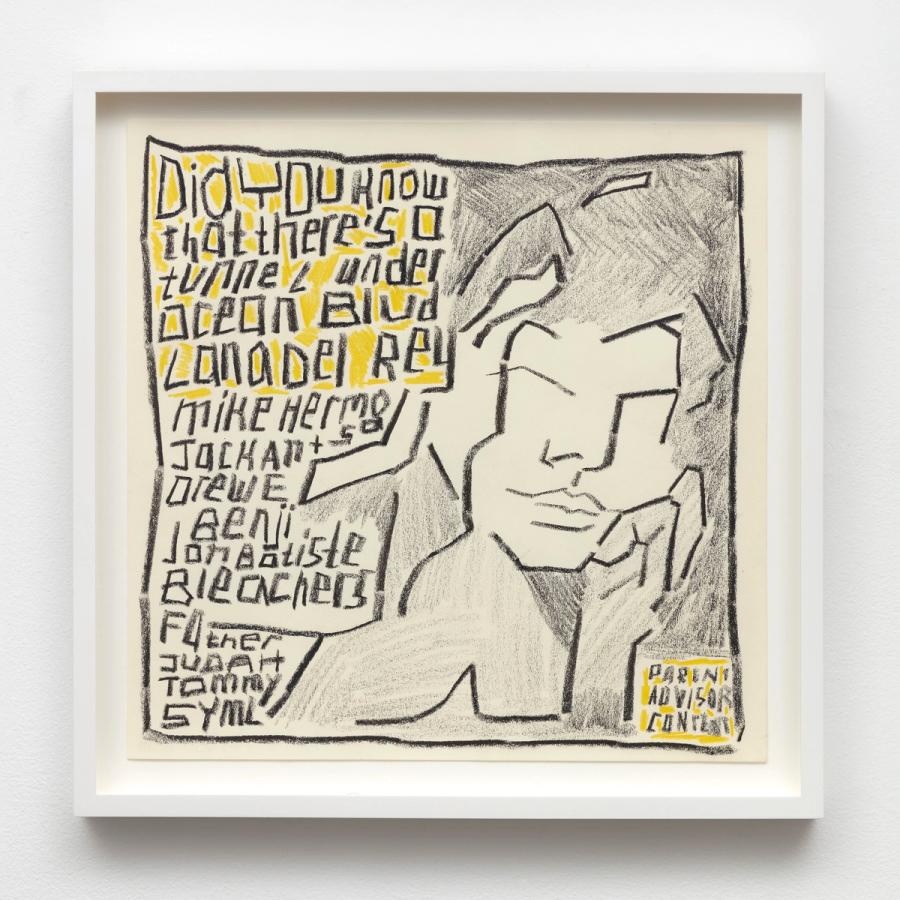 Did YOU Know
that there's a
tunnel under
ocean Blvd
Lana Del Rey
mike Hermo
sa
JACK Ant
Drew E
Benji
Jon Batiste
Bleachers
Father
JUDAH
TOMMY
SYML
PARENT
ADVISOR
CONTENT